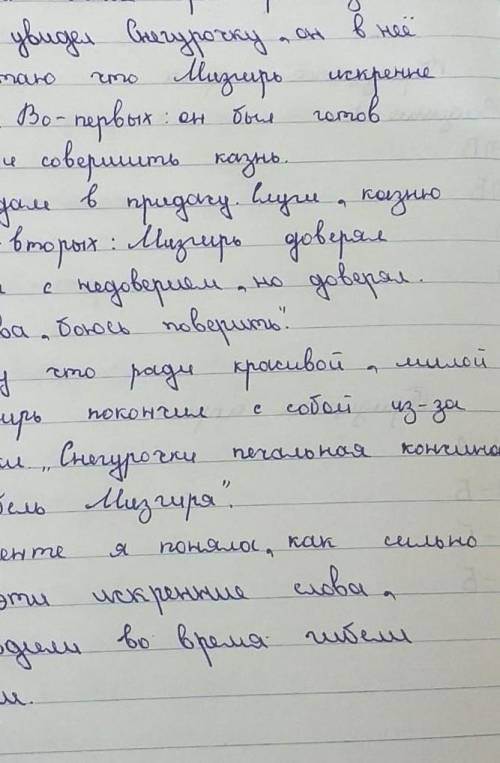 увидел Снегурочку, он в неё
таю что Мизгирь искренне
Во-первых: он был готов
и совершить казнь.
дам в придачу. Слуги, казню
вторых: Мизгирь доверял
с недоверием, но доверял.
ва, боюсь поверить".
у что ради красивой, милой
ирь покончил с собой из-за
ал „Снегурочки печальная кончина
бель Мизгиря".
енте я поняла, как сильно
эти искренние слова,
одили во время гибели
м.